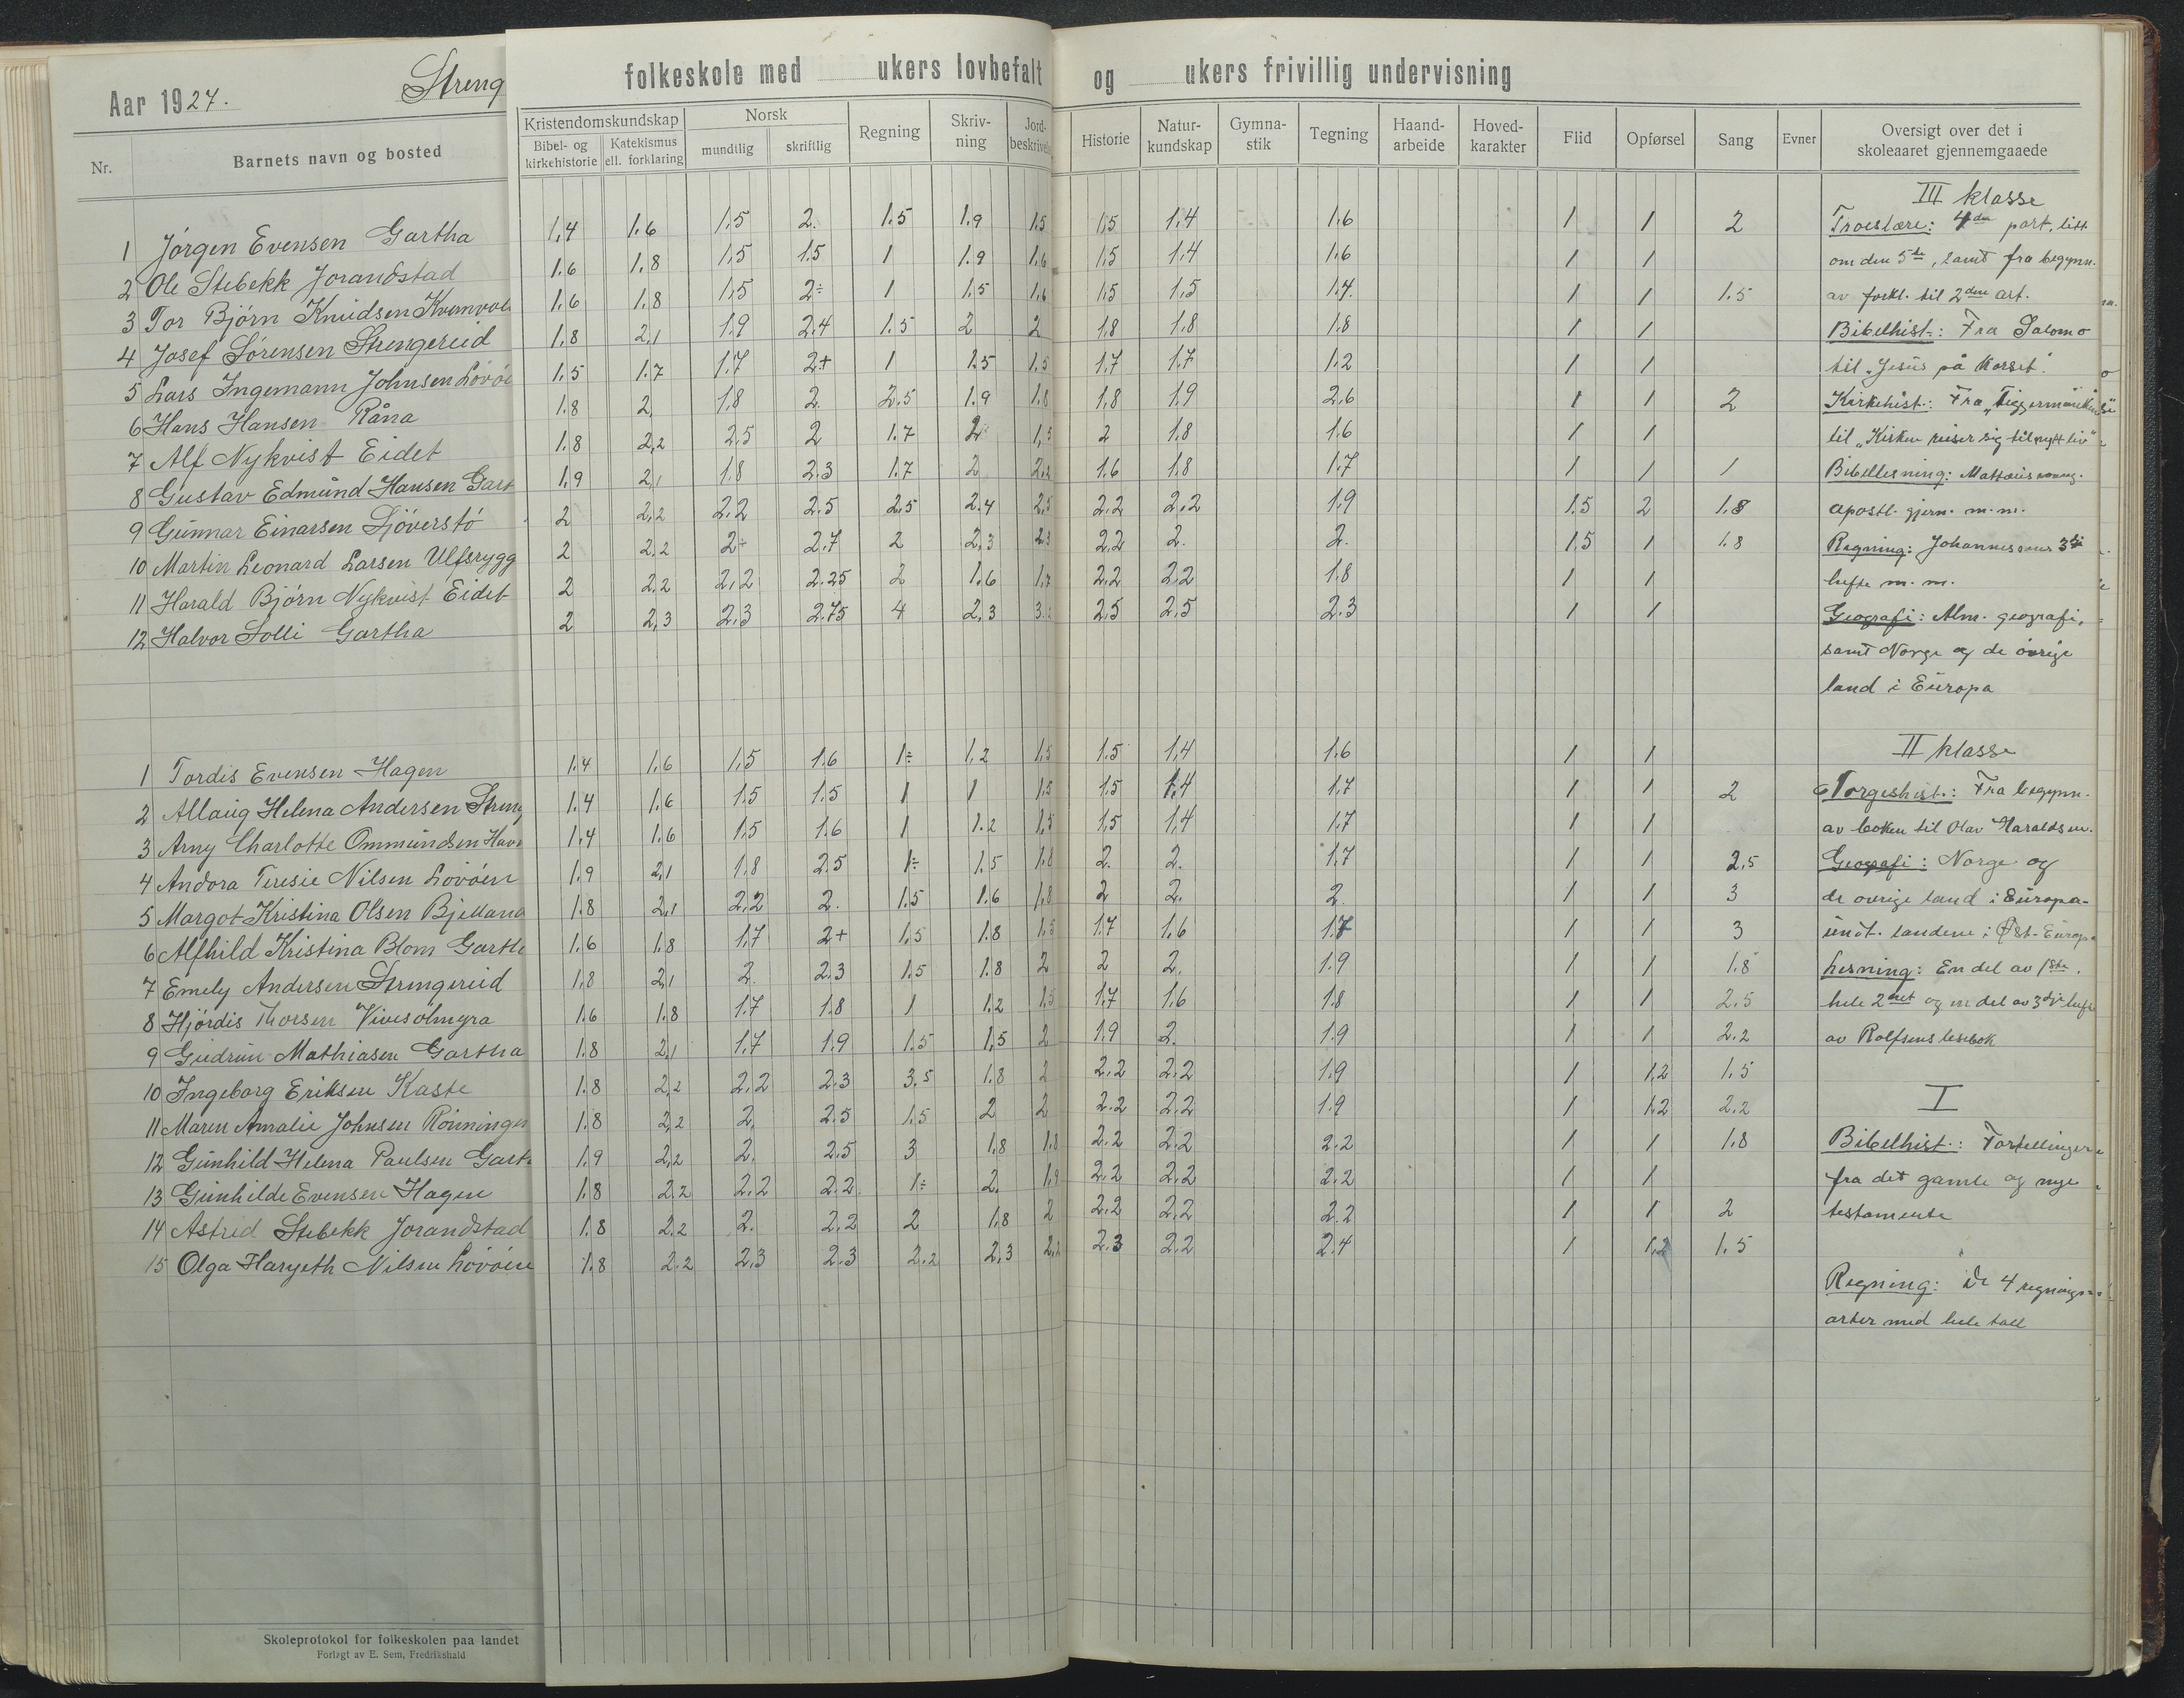 Aar 1924. Streng folkeskole med ukers lovbefalt og ukers frivillig undervisning
Nr. Barnets navn og bosted Kristendomskundskap Bibel- og kirkehistorie Katekismus ell. forklaring Norsk mundtlig skriftlig Regning Skriv-ning Jord-beskrivelse Historie Natur-kundskap Gymna-stik Tegning Haand-arbeide Hoved-karakter Flid Opførsel Sang Evner Oversigt over det i skoleaaret gjennemgaaede
III klasse
1 Jørgen Evensen Gartha 1,4 1.6 1.5 2. 1.5 1.9 1.5 1.5 1.4 1.6 1 1 2 Troeslære: 4de part, litt
2 Ole Stebekk Jorandstad 1.6 1.8 1.5 1.5 1 1.9 1.6 1.5 1.4 1.6 1 1 om den 5te, samt fra begynn.
3 Tor Bjørn Knudsen 1.6 1.8 1.5 2÷ 1 1.5 1.6 1.5 1.5 1.4. 1 1 1.5 av forkl. til 2den art.
4 Josef Sørensen Strengereid 1.8 2,1 1.9 2.4 1.5 2 2 1.8 1.8 1.8 1 1 Bibelhist.: Fra Salomo
5 Lars Ingemann Johnsen Løvøe 1.5 1.7 1.7 2+ 1 1.5 1.5 1.7 1.7 1.2 1 1 til "Jesus på korset".
6 Hans Hansen Råna 1.8 2, 1.8 2. 2.5 1.9 1.8 1.8 1.9 2.6 1 1 2 Kirkehist.: Fra
7 Alf Nykvist Eidet 1.8 2,2 2.5 2 1.7 2 1,5 2 1.8 1.6 1 1 til "Kirken reiser sig til nytt liv"
8 Gustav Edmund Hansen Gart 1.9 2,1 1.8 2.3 1.7 2 2.2 1.6 1.8 1.7 1 1 1 Bibellesning: Mattæus
9 Gunnar Einarsen Sjøverstø 2 2,2 2.2 2.5 2.5 2.4 2.5 2.2 2.2 1.9 1.5 2 1.8 apostl. gjern. m. m.
10 Martin Leonard Larsen Ulfsrygg 2 2.2 2÷ 2.7 2 2,3 2.3 2.2 2. 2. 1.5 1 1.8 Regning: Johannessens 3dje
11 Harald Bjørn Nykvist Eidet 2 2.2 2,2 2.25 2 1.6 1.7 2.2 2.2 1.8 1 1 hefte m. m.
12 Halvor Solli Gartha 2 2,3 2.3 2.75 4 2,3 3. 2.5 2.5 2.3 1 1 Geografi: Alm. geografi,
samt Norge og de øvrige
land i Europa
II klasse
1 Tordis Evensen Hagen 1.4 1.6 1.5 1.6 1÷ 1.2 1.5 1.5 1.4 1.6 1 1
2 Allaug Helena Andersen Streng 1.4 1.6 1.5 1.5 1 1 1.5 1.5 1.4 1.7 1 1 2 Norgeshist.: Fra begynn.
3 Arny Charlotte Ommundsen Hav 1.4 1.6 1.5 1.6 1 1.2 1,5 1,5 1,4 1.7 1 1 av boken til Olav Haraldsøn.
4 Andora Teresie Nilsen Løvøen 1.9 2,1 1.8 2.5 1÷ 1.5 1.8 2. 2. 1.7 1 1 2.5 Geografi: Norge og
5 Margot Kristina Olsen Bjelland 1.8 2,1 2.2 2. 1.5 1.6 1.8 2 2. 2. 1 1 3 de øvrige land i Europa-
6 Alfhild Kristina Blom Garth 1.6 1.8 1.7 2+ 1.5 1.8 1.5 1.7 1.6 1.7 1 1 3 unt. landene i Øst-Europa
7 Emely Andersen Strengereid 1,8 2,1 2. 2.3 1.5 1.8 2 2 2. 1.9 1 1 1.8 Lesning: En del av 1ste,
8 Hjørdis Thorsen Vivesølmyra 1.6 1.8 1.7 1.8 1 1.2 1.5 1.7 1.6 1.8 1 1 2.5 hele 2net og en del av 3dje hefte
9 Gudrun Mathiasen Gartha 1.8 2,1 1.7 1.9 1.5 1.5 2 1.9 2. 1.9 1 1 2.2 av Rolfsens lesebok
10 Ingeborg Eriksen Kaste 1.8 2,2 2.2 2.3 3.5 1.8 2 2.2 2.2 1.9 1 1,2 1.5
11 Maren Amalie Johnsen Rønningen 1.8 2,2 2. 2.5 1,5 2 2 2.2 2.2 1.9 1 1.2 2.2 I
12 Gunhild Helena Paulsen Garth 1.9 2,2 2. 2.5 3 1.8 1.8 2.2 2.2 2.2 1 1 1.8 Bibelhist.: Fortellinger
13 Gunhilde Evensen Hagen 1.8 2.2 2.2 2.2. 1÷ 2. 1.9 2.2 2.2 2.2 1 1 fra det gamle og nye
14 Astrid Stebekk Jorandstad 1.8 2.2 2. 2.2 2 1.8 2 2.2 2.2 2.2 1 1 2 testamente
15 Olga Hargeth Nilsen Løvøen 1.8 2.2 2.3 2.3 2.2 2,3 2,2 2.3 2.2 2.4 1 1,2 1.5
Regning: De 4 regnings-
arter med hele tall
Skoleprotokol for folkeskolen paa landet
Forlagt av E. Sem, Fredrikshald